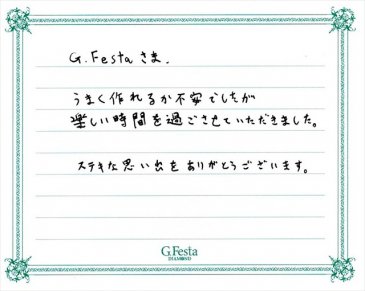 G.Festaさま.
うまく作れるか不安でしたが
楽しい時間を過ごさせていただきました。
ステキな思い出をありがとうございます。
G.Festa
DIAMOND